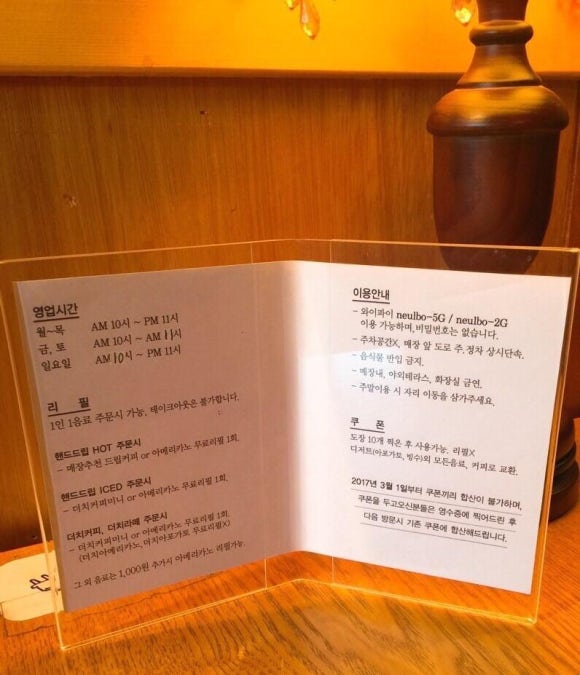 영업시간
월~목 AM 10시 ~ PM 11시
금, 토 AM 10시 ~ AM 11시
일요일 AM 10시 ~ PM 11시
리 필
1인 1음료 주문시 가능, 테이크아웃은 불가합니다.
핸드드립 HOT 주문시
- 매장추천 드립커피 or 아메리카노 무료리필 1회.
핸드드립 ICED 주문시
- 더치커피미니 or 아메리카노 무료리필 1회.
더치커피, 더치라떼 주문시
- 더치커피미니 or 아메리카노 무료리필 1회.
(더치아메리카노, 더치아포가토 무료리필X)
그 외 음료는 1,000원 추가시 아메리카노 리필가능.
이용안내
- 와이파이 neulbo-5G / neulbo-2G
이용 가능하며, 비밀번호는 없습니다.
- 주차공간X, 매장 앞 도로 주.정차 상시단속.
- 음식물 반입 금지.
- 매장내, 야외테라스, 화장실 금연.
- 주말이용 시 자리 이동을 삼가주세요.
쿠 폰
도장 10개 찍은 후 사용가능. 리필X
디저트(아포가토, 빙수)외 모든음료, 커피로 교환.
2017년 3월 1일부터 쿠폰끼리 합산이 불가하며,
쿠폰을 두고오신분들은 영수증에 찍어드린 후
다음 방문시 기존 쿠폰에 합산해드립니다.